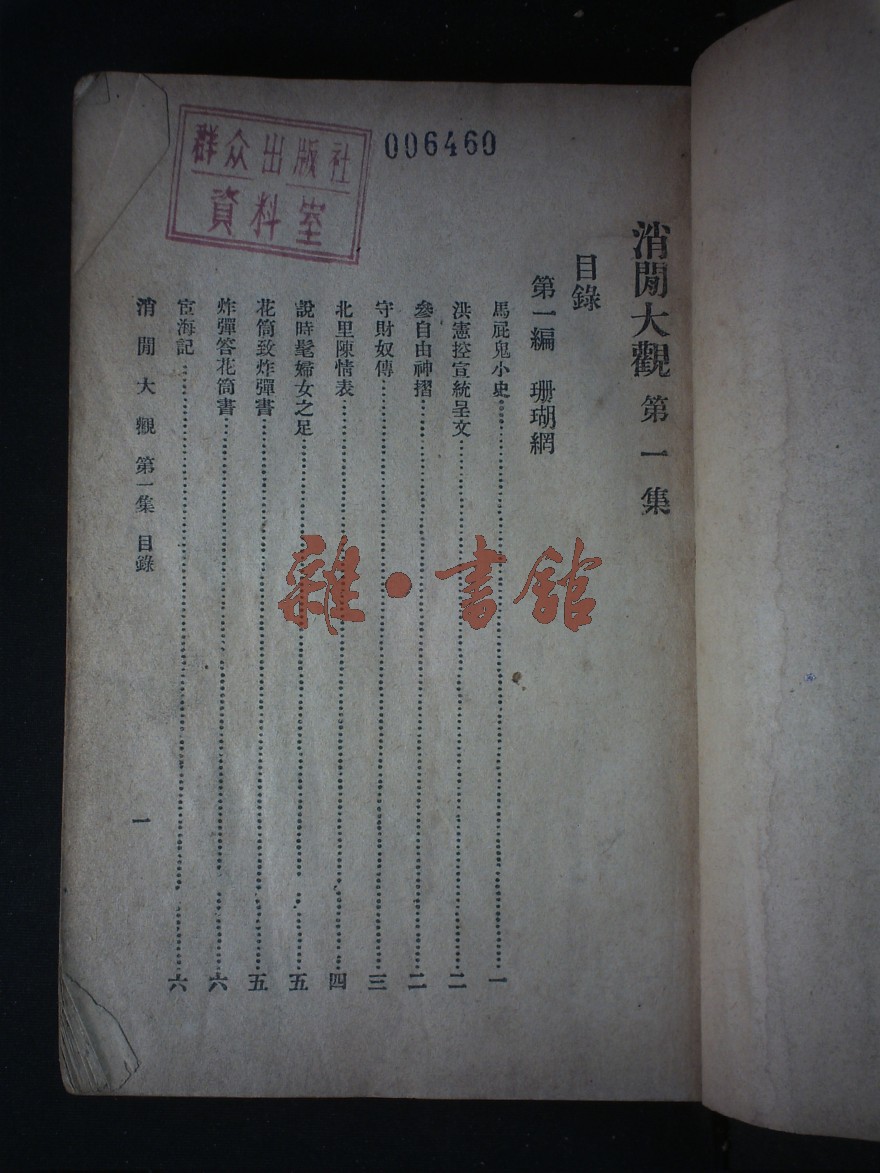 群众出版社
資料室
006460
消閒大觀 第一集
目錄
第一編 珊瑚網
馬屁鬼小史 一
洪憲控宣統呈文 二
參自由神摺 二
守財奴傳 三
北里陳情表 四
說時髦婦女之足 五
花筒致炸彈書 五
炸彈答花筒書 六
宦海記 六
消閒大觀 第一集 目錄
一
雜·書館